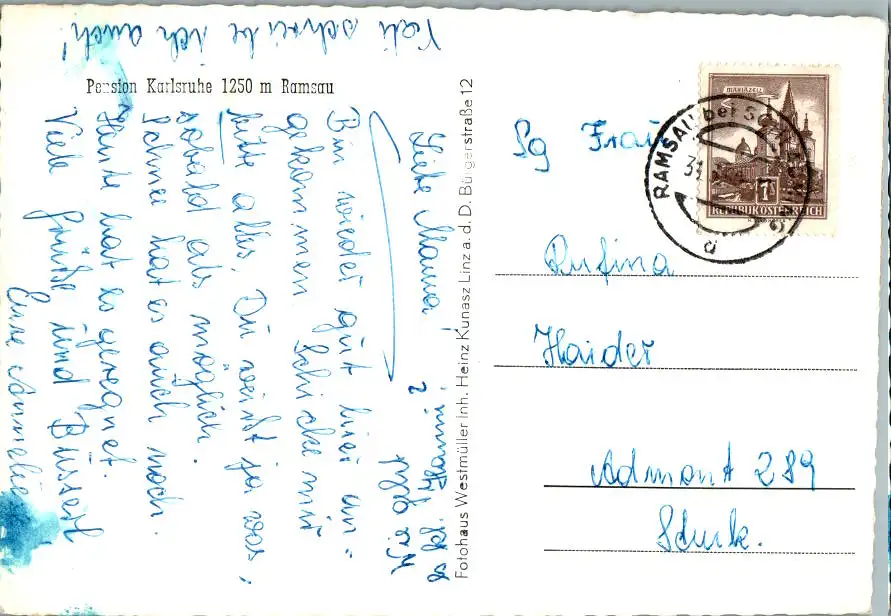 Pension Karlsruhe 1250 m Ramsau
Liebe Mama!
Bin wieder gut hier an=
gekommen. Schicke mir
bitte alles, Du weißt ja was,
sobald als möglich.
Schnee hat es auch noch.
Heute hat es geregnet.
Viele Grüße und Busserl
Eure Annelie
Vati schreibe ich auch!
Hanni
Fotohaus Westmüller Inh. Heinz Kunasz Linz a. d. D. Bürgerstraße 12
MARIAZELL
1S
REPUBLIK ÖSTERREICH
RAMSAU bei
Sg Frau
Rufina
Haider
Admont 289
Stmk.